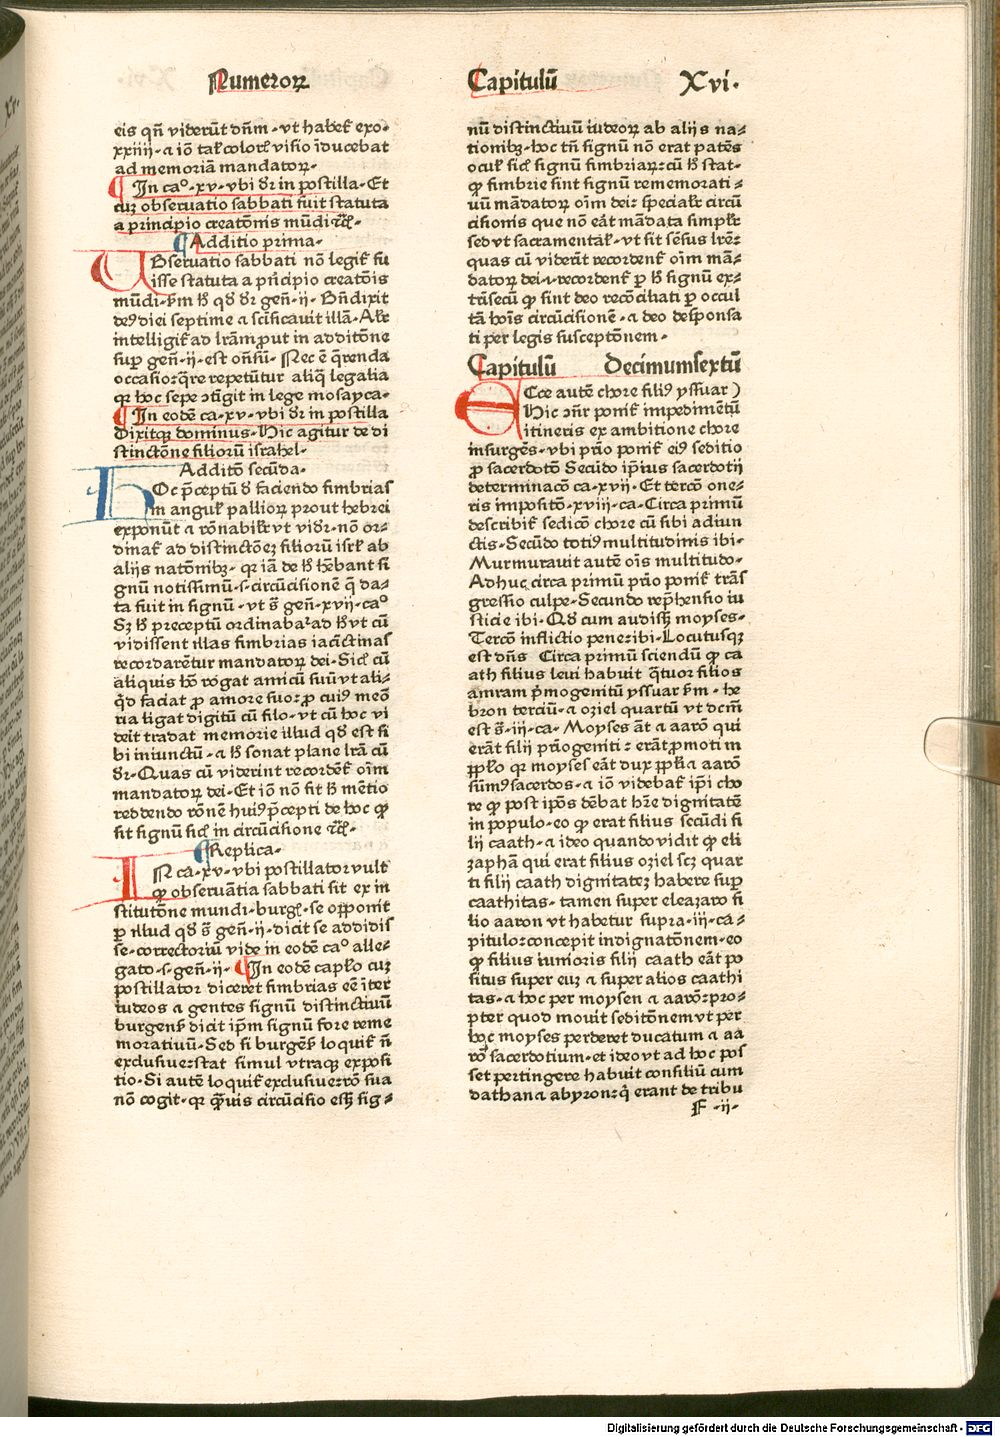 Numeroꝝ
Capitulū Xvi.
eis qñ viderūt dñm. vt habet̉ exo.
xxiiij. a iō tal̉ colorꝭ visio īducebat
ad memoriā mandatoꝝ.
¶ In caº. xv. vbi dr̄ in postilla. Et
cuꝫ obseruatio sabbati fuit statuta
a principio creatōnis mūdi ꝛc̄.
¶ Additio prima.
OBseruatio sabbati nō legit̉ fu
isse statuta a pͥncipio creatōis
mūdi. ẜm ꝭ qd̄ dr̄ gen̄. ij. Bn̄dixit
deꝰ diei septime a sc̄ificauit illā. Alr̄
intelligit̉ ad lr̄am ꝓut in additōne
suꝑ gen̄. ij. est on̄sū. Nec ē q̄renda
occasio: q̄re repetūtur aliq̄ legalia
qꝛ hoc sepe ↄtigit in lege mosayca.
¶ In eodē ca. xv. vbi dr̄ in postilla
Dixitqꝫ dominus. Hic agitur de di
stinctōne filiorū israhel.
Additō secūda.
HOc p̄ceptū d̄ faciendo fimbrias
in angul̉ pallioꝝ prout hebrei
exponūt a rōnabilr̄ vt vidr̄. nō or⸗
dinat̉ ad distinctōeꝫ filiorū isrl̄ ab
alijs natōnibꝫ. qꝛ iā de ꝭ hēbant si
gnū notissimū. s. circūcisionē q̄ da⸗
ta fuit in signū. vt ꝭ gen̄. xvij. caº
Sꝫ ꝭ preceptū ordinabat̉ ad ꝭ vt cū
vidissent illas fimbrias iacīctinas
recordarētur mandatoꝝ dei. Sic̄ cū
aliquis hō rogat amicū suū vt ali⸗
qͥd faciat ꝓ amore suo: ꝓ cuiꝰ meō
ria ligat digitū cū filo. vt cū hoc vi
deit tradat memorie illud qd̄ est si
bi iniunctū. a ꝭ sonat plane lr̄a cū
dr̄. Quas cū viderint recordēt̉ oīm
mandatoꝝ dei. Et iō nō fit ꝭ mētio
reddendo rōnē huiꝰ p̄cepti de hoc ꝙ
sit signū sic̄ in circūcisione ꝛc̄.
¶ Replica.
IN ca. xv. vbi postillator vult
ꝙ obseruātia sabbati sit ex in
stitutōne mundi. burgͤ. se opponit
ꝑ illud qd̄ ꝭ gen̄. ij. dicit se addidis
se. correctoriū vide in eodē caº alle⸗
gato. s. gen̄. ij. ¶ In eodē caplo cuꝫ
postillator diceret fimbrias eē īter
iudeos a gentes signū distinctiuū
burgens̉ dicit ip̄m signū fore reme
moratiuū. Sed si burgens̉ loquit̉ n̄
exclusiue: stat simul vtraqꝫ exposi
tio. Si autē loquit̉ exclusiue: rō sua
nō cogit. qꝛ q̄uis circūcisio esꝫ sig⸗
nū distinctiuū iudeoꝝ ab alijs na⸗
tionibꝫ. hoc tn̄ signū nō erat patēs
ocul̉ sic̄ signū fimbriaꝝ: cū ꝭ stat.
ꝙ fimbrie sint signū rememorati⸗
uū mādatoꝝ oīm dei: specialr̄ circū
cisionis que nō eāt mādata simplr̄
sed vt sacramental̉. vt sit sēsus lr̄e:
quas cū viderūt recordent̉ oīm mā⸗
datoꝝ dei. i. recordent̉ ꝑ ꝭ signū ex⸗
trīsecū ꝙ sint deo recōciliati ꝑ occul
tā hoīs circūcisionē. a deo desponsa
ti per legis susceptōnem.
Capitulū Decimumsextū
ECce autē chore filiꝰ yssuar )
Hic ↄn̄r ponit̉ impedimētū
itineris ex ambitione chore
insurgēs. vbi prīo ponit̉ eiꝰ seditio
ꝓ sacerdotō Secūdo ip̄ius sacerdotij
determinacō ca. xvij. Et tercō one⸗
ris impositō. xviij. ca. Circa primū
describit̉ sedicō chore cū sibi adiun
ctis. Secūdo totiꝰ multitudinis ibi.
Murmurauit autē oīs multitudo.
Adhuc circa primū prīo ponit̉ trās
gressio culpe. Secundo rep̄hensio iu
sticie ibi. Qd̄ cum audisꝫ moyses.
Tercō inflictio pene: ibi. Locutusqꝫ
est dn̄s Circa primū sciendū ꝙ ca
ath filius leui habuit q̄tuor filios
amram pͥmogenitū yssuar ẜm. he
bron terciū. a oziel quartū vt dcm̄
est ꝭ. iij. ca. Moyses āt a aarō qui
erāt filij prīogeniti: erāt ꝓmoti in
pplo qꝛ moyses eāt dux ppli a aarō
sūmꝰ sacerdos. a iō videbat̉ ip̄i cho
re ꝙ post ip̄os dēbat hr̄e dignitatē
in populo. eo ꝙ erat filius scd̄i fi
lij caath. a ideo quando vidit ꝙ eli
zaphā qui erat filius oziel scꝫ quar
ti filij caath dignitateꝫ habere suꝑ
caathitas. tamen super eleazaro fi
lio aaron vt habetur supra. iij. ca⸗
pitulo: concepit indignatōnem. eo
ꝙ filius iunioris filij caath eāt po
situs super euꝫ a super alios caathi
tas. a hoc per moysen a aarō: pro⸗
pter quod mouit seditōnem vt per
hoc moyses perderet ducatum a aa
rō sacerdotium. et ideo vt ad hoc pos
set pertingere habuit consiliū cum
dathan a abyron: qͥ erant de tribu
F .ij.
Digitalisierung gefördert durch die Deutsche Forschungsgemeinschaft - DFG